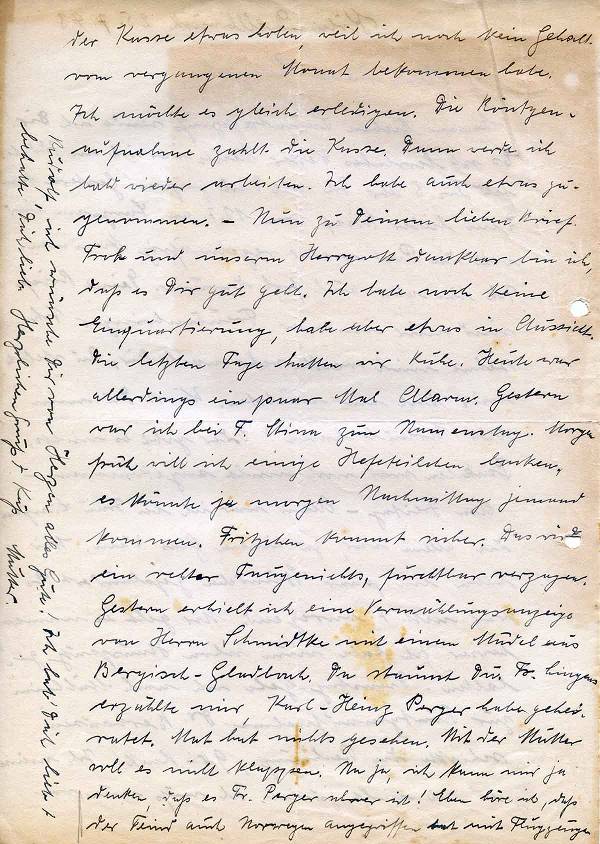 der Kasse etwas holen, weil ich noch kein Gehalt
vom vergangenen Monat bekommen habe.
Ich möchte es gleich erledigen. Die Röntgen-
aufnahme zahlt die Kasse. Dann werde ich
bald wieder arbeiten. Ich habe auch etwas zu-
genommen. – Nun zu Deinem lieben Brief.
Froh und unserm Herrgott dankbar bin ich,
daß es Dir gut geht. Ich habe noch keine
Einquartierung, habe aber etwas in Aussicht.
Die letzten Tage hatten wir Ruhe. Heute war
allerdings ein paar Mal Alarm. Gestern
war ich bei T. Stina zum Namenstag. Morgen
früh will ich einige Hefeteilchen backen,
es könnte ja morgen Nachmittag jemand
kommen. Fritzchen kommt sicher. Das wird
ein netter Taugenichts, furchtbar verzogen.
Gestern erhielt ich eine Vermählungsanzeige
von Herrn Schmidtke mit einem Mädel aus
Bergisch-Gladbach. Da staunst Du. Fr. Lingens
erzählte mir, Karl-Heinz Perger habe gehei-
ratet. Hat nichts gesehen. Mit der Mutter
soll es nicht klappen. Na ja, ich kann mir ja
denken, daß es Fr. Perger schwer ist! Eben höre ich, daß
der Feind auch Norwegen angegriffen hat mit Flugzeugen
Rudolf, ich wünsche Dir von Herzen alles Gute! Ich hab' Dich lieb +
behalte Dich lieb. Herzlichen Gruß + Kuß Mutter.